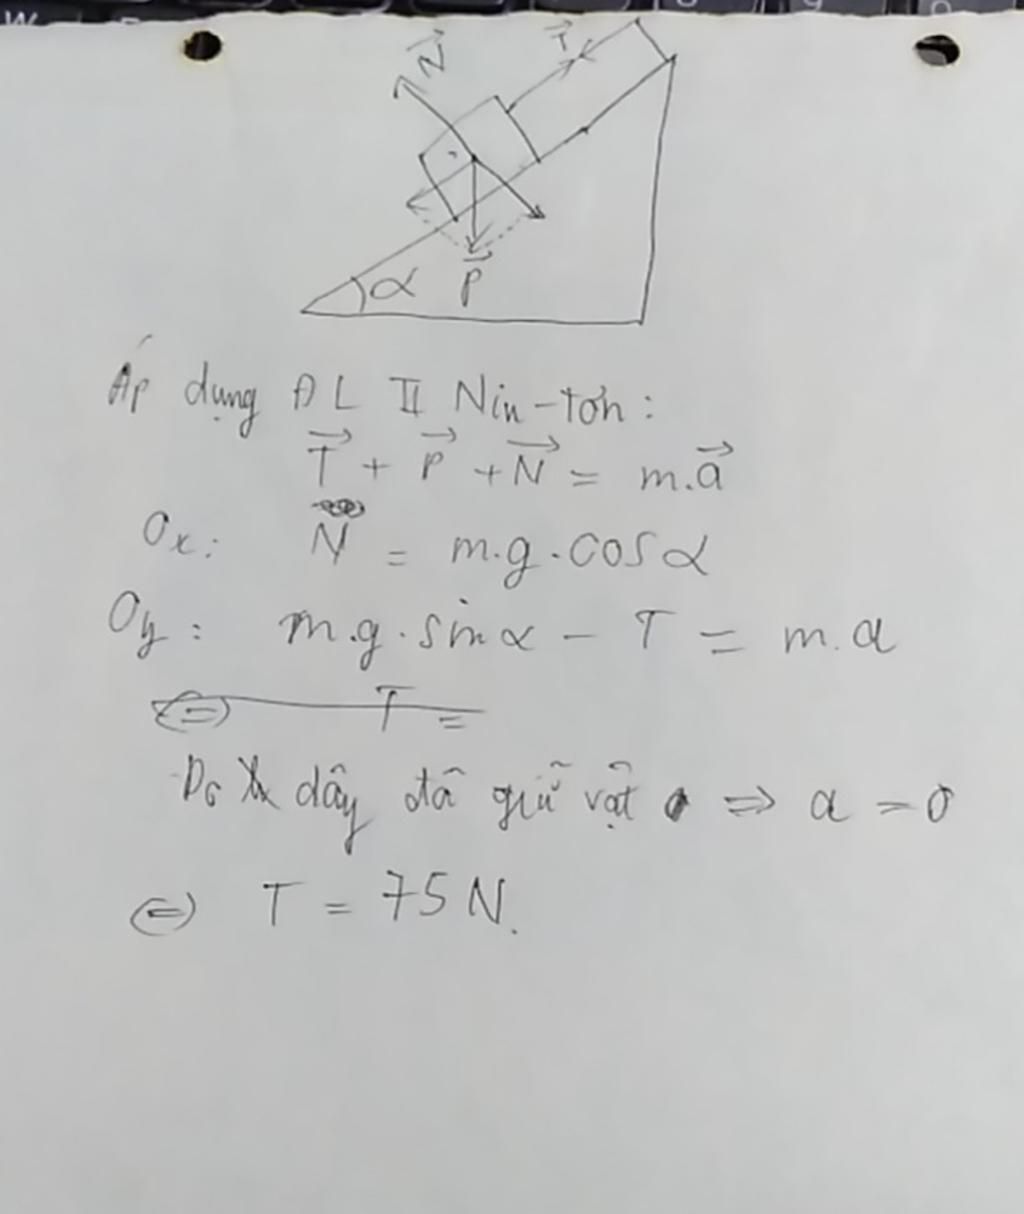 N
T
α
P
Áp dụng ĐL II Niu-tơn:
T + P + N = m.a
Ox: N = m.g.cosα
Oy: m.g.sinα - T = m.a
⇔ T =
Do dây đã giữ vật ⇒ a = 0
⇔ T = 75 N.